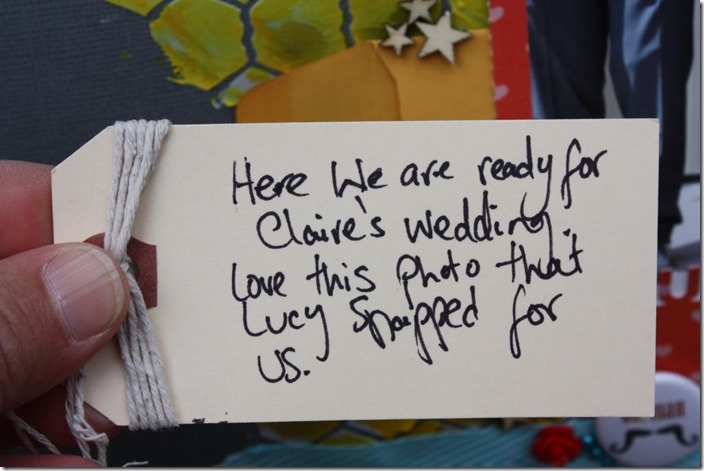 Here We are ready for
Claire's wedding.
Love this photo that
Lucy Snapped for
us.